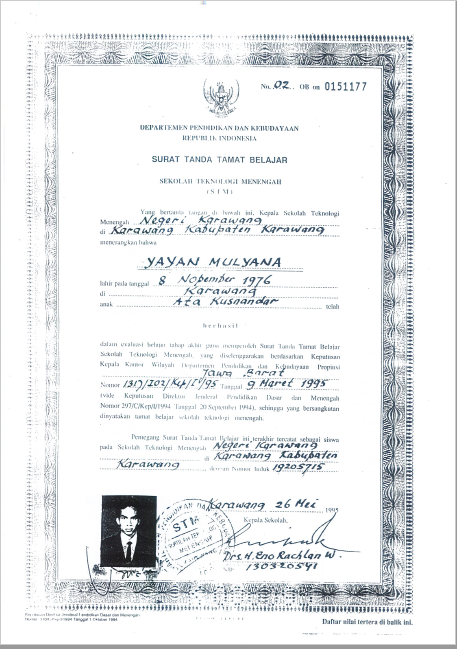 No. 02 OB on 0151177
DEPARTEMEN PENDIDIKAN DAN KEBUDAYAAN
REPUBLIK INDONESIA
SURAT TANDA TAMAT BELAJAR
SEKOLAH TEKNOLOGI MENENGAH
(STM)
Yang bertanda tangan di bawah ini, Kepala Sekolah Teknologi
Menengah Negeri Karawang
di Karawang Kabupaten Karawang
menerangkan bahwa
YAYAN MULYANA
lahir pada tanggal 8 Nopember 1976
di Karawang
anak Ata Kusnandar telah
berhasil
dalam evaluasi belajar tahap akhir guna memperoleh Surat Tanda Tamat Belajar
Sekolah Teknologi Menengah, yang diselenggarakan berdasarkan Keputusan
Kepala Kantor Wilayah Departemen Pendidikan dan Kebudayaan Propinsi
Jawa Barat
Nomor Tanggal 9 Maret 1995
(vide Keputusan Direktur Jenderal Pendidikan Dasar dan Menengah
Nomor 297/C/Kep/I/1994 Tanggal 20 September 1994), sehingga yang bersangkutan
dinyatakan tamat belajar sekolah teknologi menengah.
Pemegang Surat Tanda Tamat Belajar ini terakhir tercatat sebagai siswa
pada Sekolah Teknologi Menengah Negeri Karawang
di Karawang Kabupaten
Karawang dengan Nomor Induk 19205715
Karawang 26 Mei 1995
Kepala Sekolah,
STM
Drs. H. Eno Rachlan W.
NIP. 130320541
Daftar nilai tertera di balik ini.